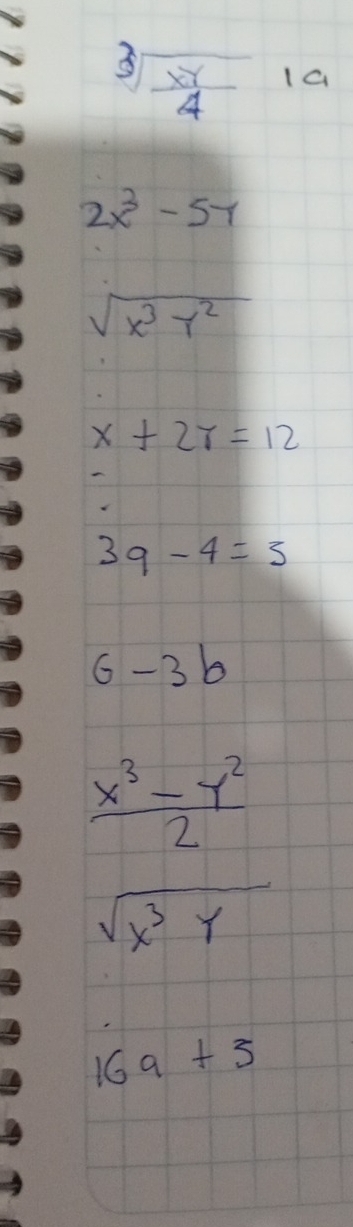 ∛(xy/4) la
2x³ - 5y
√(x³ y²)
x + 2y = 12
3a - 4 = 5
6 - 3b
(x³ - y²)/2
√(x³ y)
16a + 5